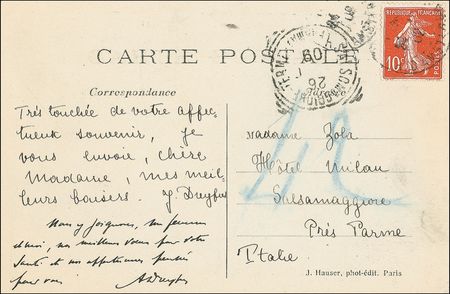 CARTE POSTALE
RÉPUBLIQUE FRANÇAISE
10c
POSTES
SALSOMAGGIORE
09
26
Correspondance
Très touchée de votre affec-
tueux souvenir, je
vous envoie, chère
Madame, mes meil-
leurs baisers. J. Dreyfus
Nous y joignons, ma femme
et moi, nos meilleurs vœux pour votre
santé et nos affectueuses pensées
pour vous
ADreyfus
Madame Zola
Hôtel Milan
Salsamaggiore
Près Parme
Italie
J. Hauser, phot-édit. Paris